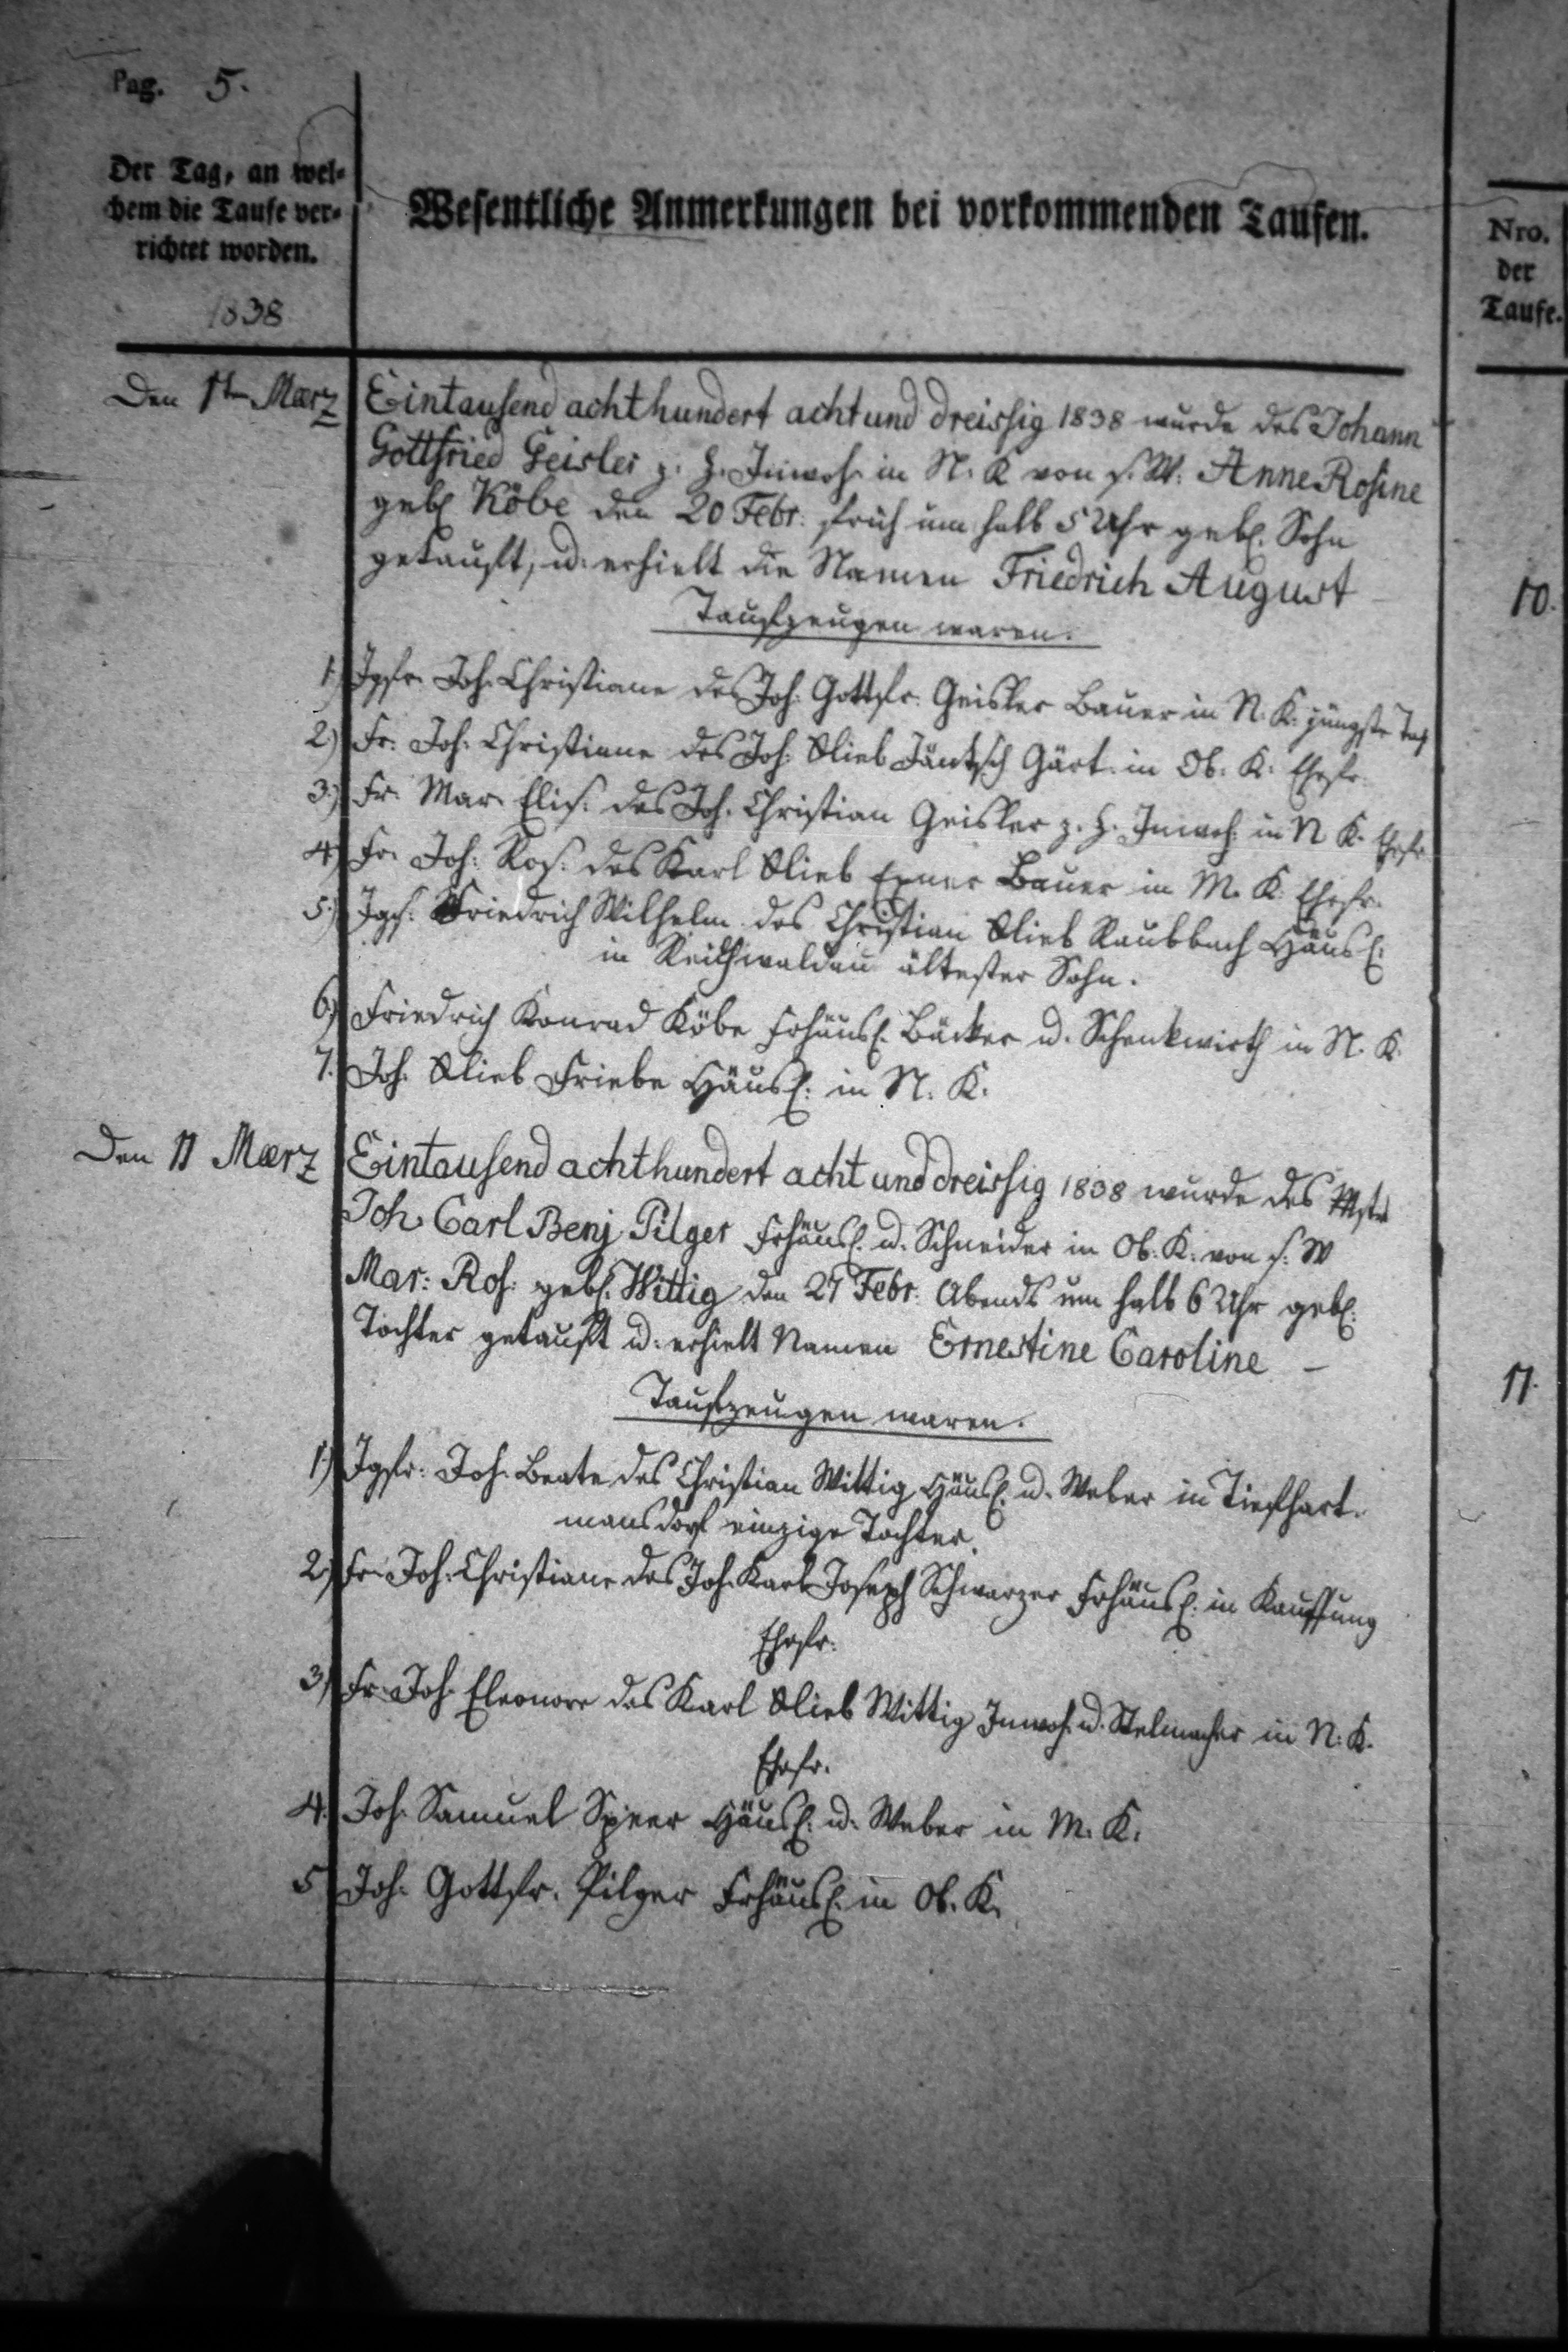 Pag. 5.
Der Tag, an wel-
chem die Taufe ver-
richtet worden.
1838
Wesentliche Anmerkungen bei vorkommenden Taufen.
Nro.
der
Taufe.
Den 1t März
Eintausend achthundert acht und dreissig 1838 wurde des Johann
Gottfried Geisler z. H. Inwoh. in N. K von s. W. Anne Rosine
geb. Köbe den 20 Febr. früh um halb 5 Uhr geb. Sohn
getauft, u. erhielt die Namen Friedrich August
10.
Taufzeugen waren.
1.) Jgfr. Joh. Christiane des Joh. Gottfr. Geisler Bauer in N. K. jüngste Toch
2.) Fr. Joh. Christiane des Joh. Glieb Jäntsch Gärt. in Ob. K. Ehefr.
3.) Fr. Mar. Elis. des Joh. Christian Geisler z. H. Inwoh. in N K. Ehefr
4.) Fr. Joh. Ros. des Karl Glieb Exner Bauer in M. K. Ehefr.
5.) Jgs. Friedrich Wilhelm des Christian Glieb Raubbach Häusl.
in Reichwaldau ältester Sohn.
6.) Friedrich Konrad Köbe Frhäusl. Bäcker u. Schenkwirth in N. K.
7. Joh. Glieb Friebe Häusl. in N. K.
Den 11 März
Eintausend achthundert acht und dreissig 1838 wurde des Mstr
Joh Carl Benj Pilger Frhäusl. u. Schneider in Ob. K. von s. W
Mar: Ros: geb. Wittig den 27 Febr. Abends um halb 6 Uhr geb.
Tochter getauft u. erhielt Namen Ernestine Caroline –
11.
Taufzeugen waren.
1.) Jgfr: Joh. Beate des Christian Wittig Häusl. u. Weber in Tiefhart-
mansdorf einzige Tochter.
2.) Fr. Joh. Christiane des Joh. Karl Joseph Schwarzer Frhäusl. in Kauffung
Ehefr.
3.) Fr. Joh. Eleonore des Karl Glieb Wittig Inwoh. u. Stelmacher in N. K.
Ehefr.
4. Joh. Samuel Speer Häusl. u. Weber in M. K.
5 Joh. Gottfr. Pilger Frhäusl. in Ob. K.